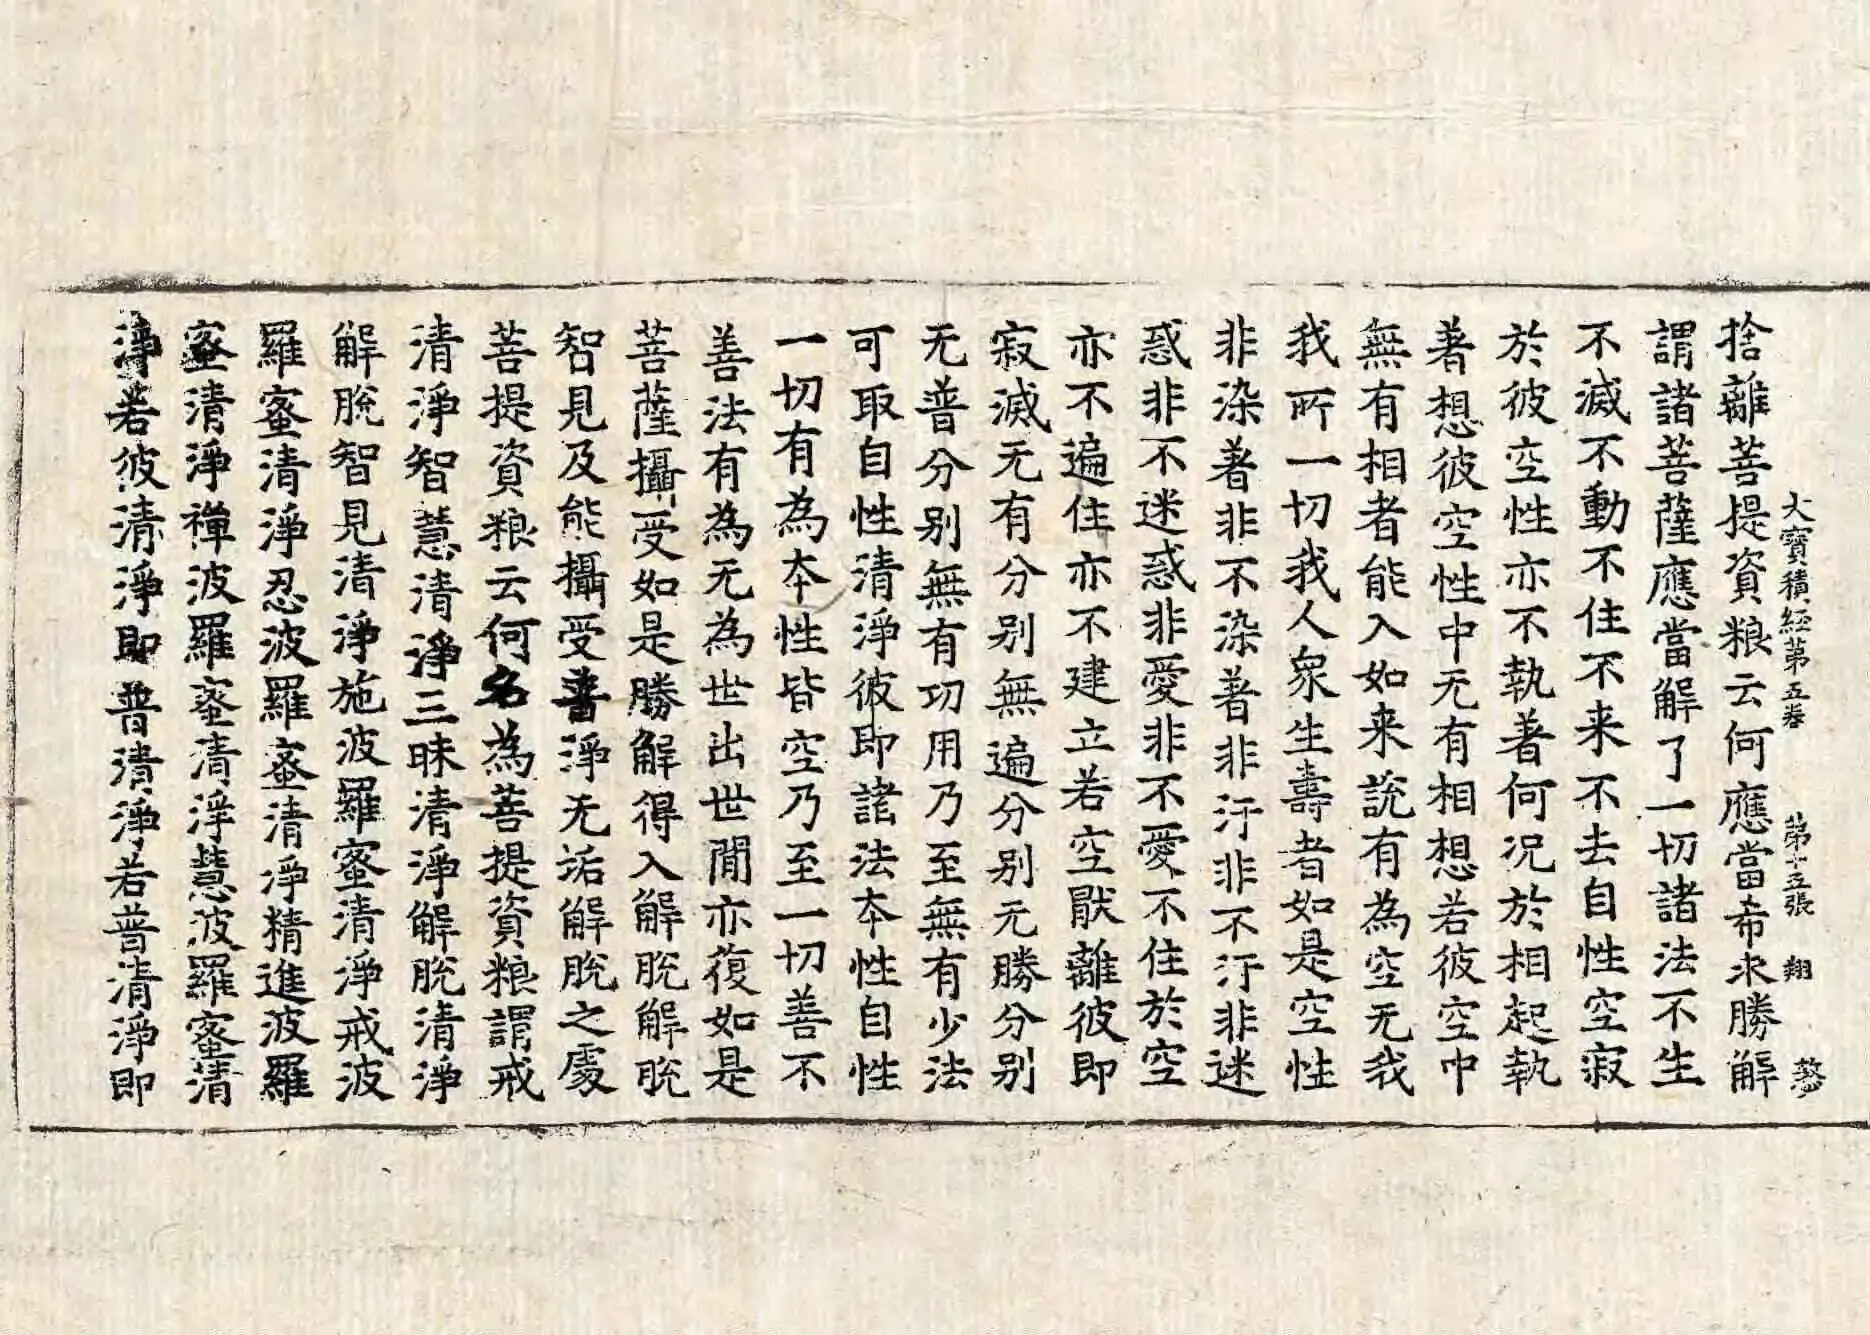 大寶積經第五卷 第十五張 翔
捨離菩提資粮云何應當希求勝解
謂諸菩薩應當解了一切諸法不生
不滅不動不住不来不去自性空寂
於彼空性亦不執著何況於相起執
著想彼空性中无有相想若彼空中
無有相者能入如来說有為空无我
我所一切我人衆生壽者如是空性
非染著非不染著非汙非不汙非迷
惑非不迷惑非愛非不愛不住於空
亦不遍住亦不建立若空猒離彼即
寂滅无有分别無遍分别无勝分别
无普分别無有功用乃至無有少法
可取自性清淨彼即諸法本性自性
一切有為本性皆空乃至一切善不
善法有為无為世出世間亦復如是
菩薩攝受如是勝解得入解脫解脫
智見及能攝受普淨无垢解脫之處
菩提資粮云何名為菩提資粮謂戒
清淨智慧清淨三昧清淨解脫清淨
解脫智見清淨施波羅蜜清淨戒波
羅蜜清淨忍波羅蜜清淨精進波羅
蜜清淨禪波羅蜜清淨慧波羅蜜清
淨若彼清淨即普清淨若普清淨即